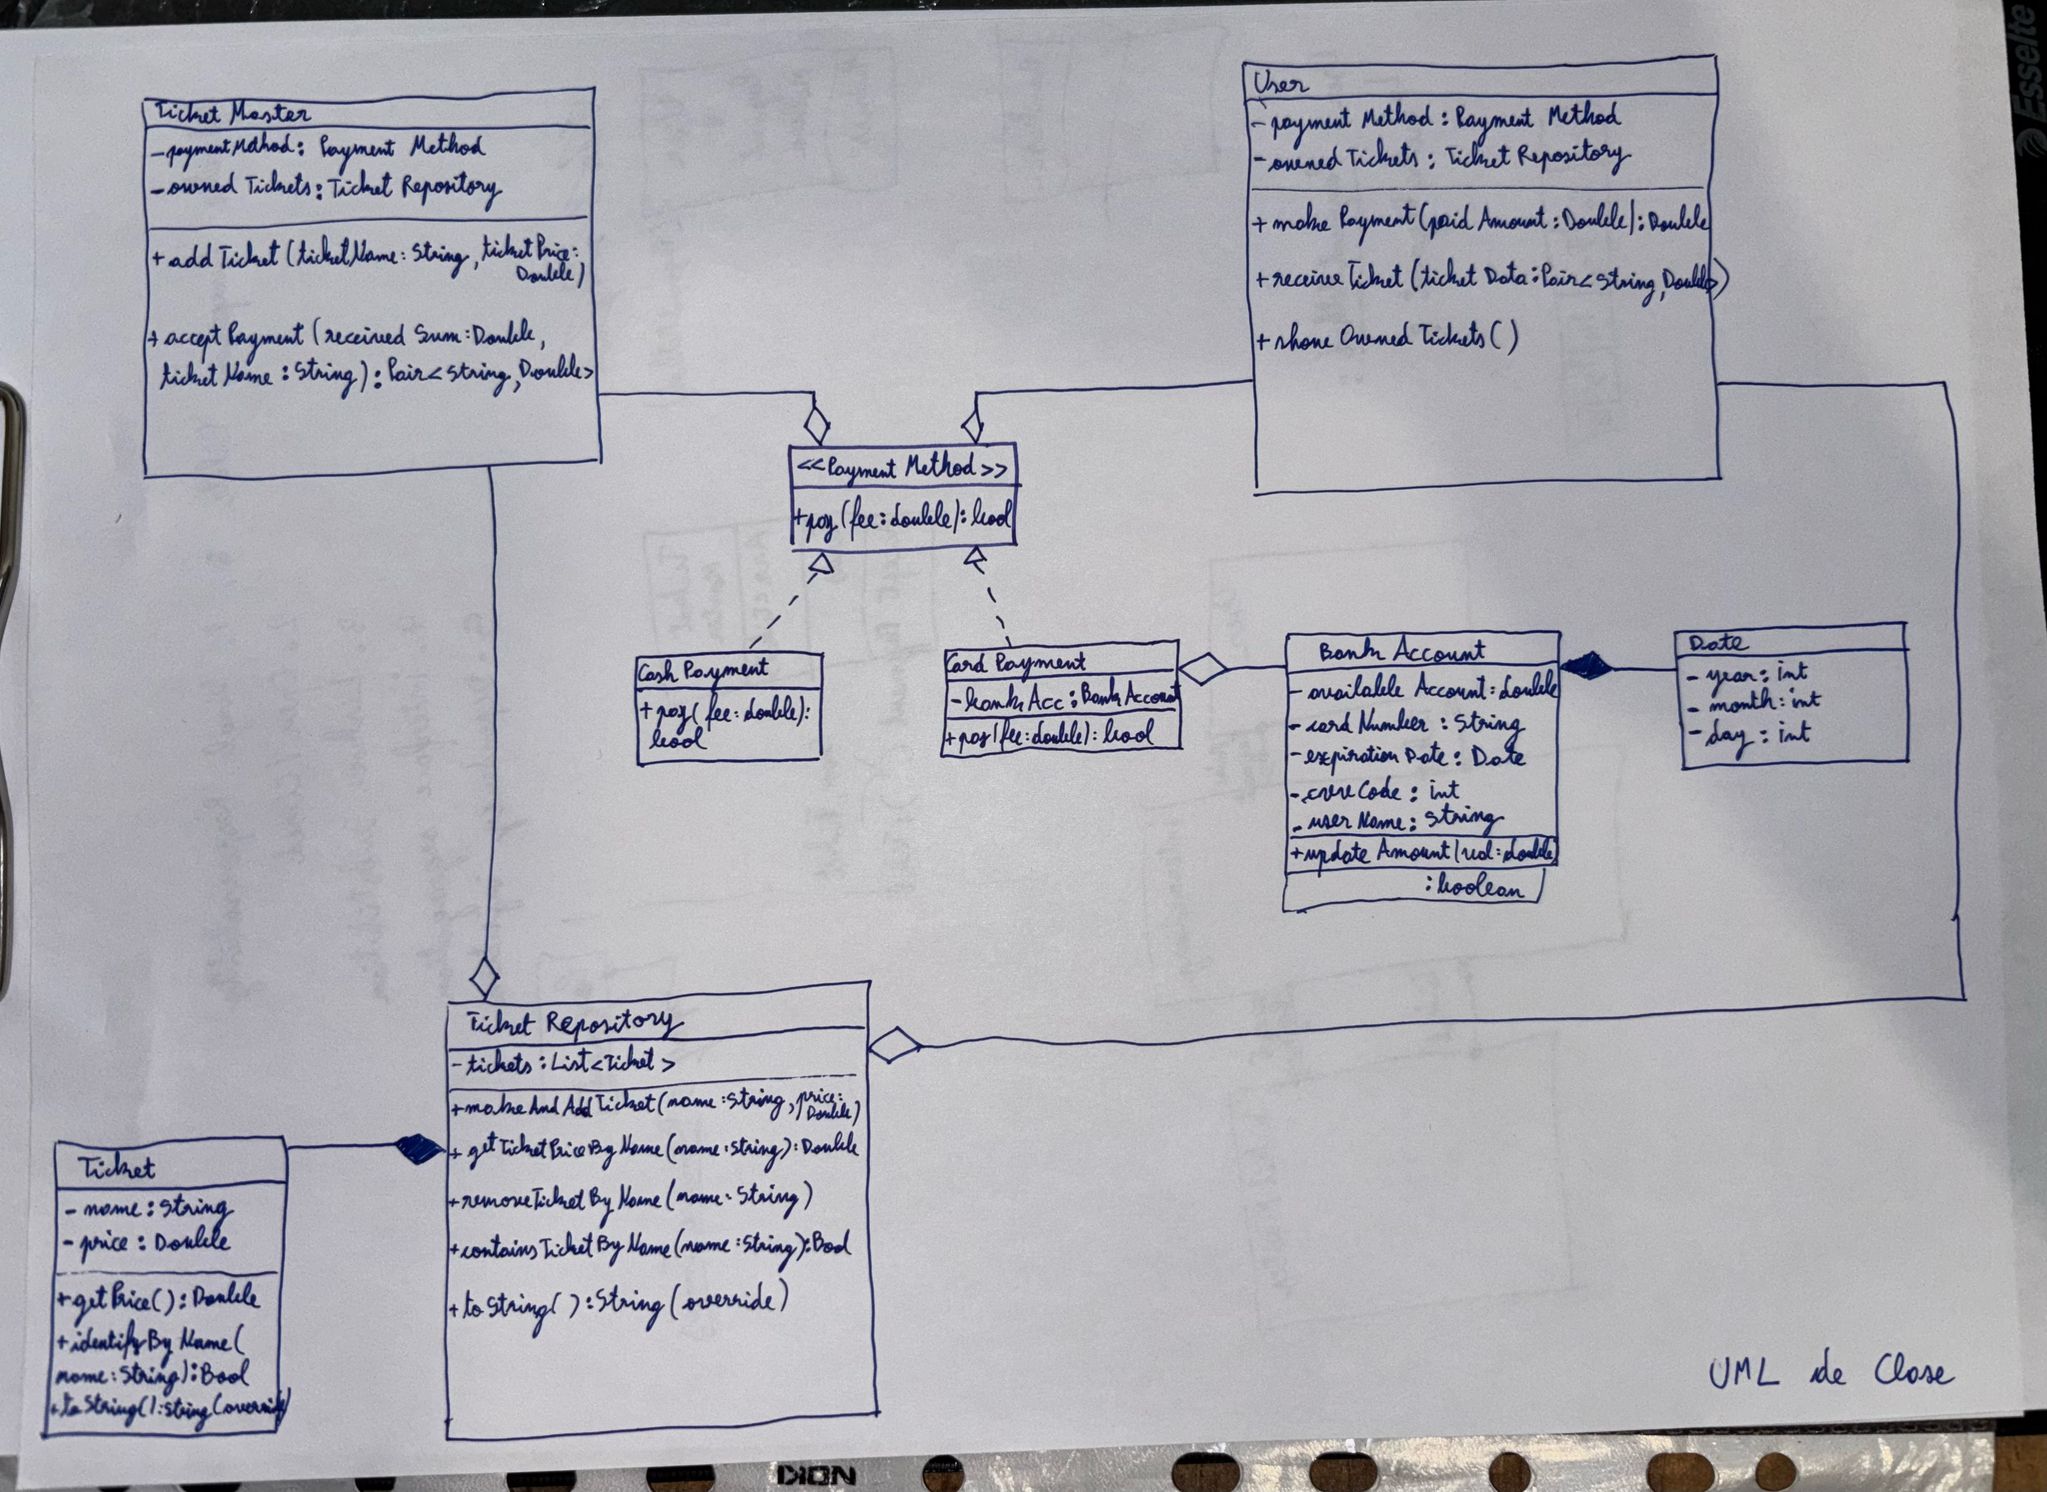 Esselte
Ticket Master
- paymentMethod: Payment Method
- owned Tickets: Ticket Repository
+ add Ticket (ticketName: String, ticketPrice:
Double)
+ accept Payment (received Sum: Double,
ticketName: String): Pair<String, Double>
User
- payment Method: Payment Method
- owned Tickets: Ticket Repository
+ make Payment (paid Amount: Double): Double
+ receive Ticket (ticket Data: Pair<String, Double>)
+ show Owned Tickets()
<<Payment Method>>
+ pay (fee: double): bool
Cash Payment
+ pay (fee: double):
bool
Card Payment
- bank Acc: Bank Account
+ pay (fee: double): bool
Bank Account
- available Account: double
- card Number: String
- expiration Date: Date
- Code: int
- user Name: String
+ update Amount (val: double)
: boolean
Date
- year: int
- month: int
- day: int
Ticket Repository
- tickets: List<Ticket>
+ make And Add Ticket (name: String, price:
Double)
+ get Ticket Price By Name (name: String): Double
+ remove Ticket By Name (name: String)
+ contains Ticket By Name (name: String): Bool
+ to String(): String (override)
Ticket
- name: String
- price: Double
+ get Price(): Double
+ identify By Name (
name: String): Bool
+ to String(): String (override)
UML de Clase
DION